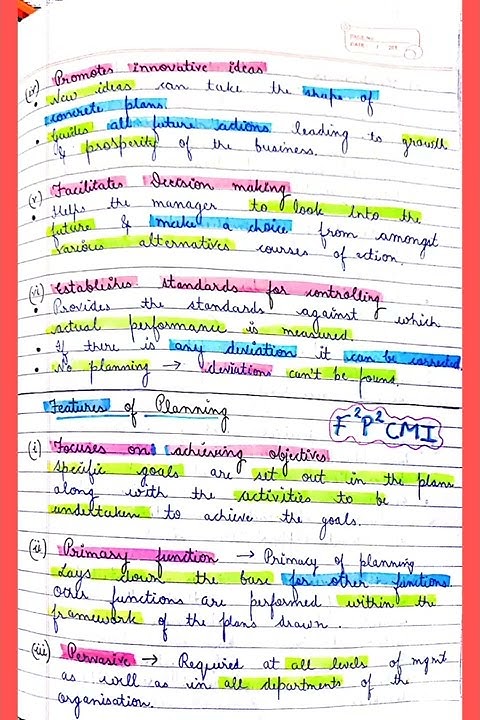 PAGE No.
DATE
(iv) Promotes innovative ideas
• New ideas can take the shape of
concrete plans.
• Guides all future actions leading to growth
& prosperity of the business.
(v) Facilitates Decision making
• Helps the manager to look into the
future & make a choice from amongst
various alternatives courses of action.
(vi) Establishes standards for controlling
• Provides the standards against which
actual performance is measured.
• If there is any deviation it can be corrected
• No planning → deviations can't be found.
Features of Planning
F²P²CMI
(i) Focuses on achieving objectives
Specific goals are set out in the plans
along with the activities to be
undertaken to achieve the goals.
(ii) Primary function → Primacy of planning
Lays down the base for other functions.
Other functions are performed within the
framework of the plans drawn.
(iii) Pervasive → Required at all levels of mgmt
as well as in all departments of the
organisation.